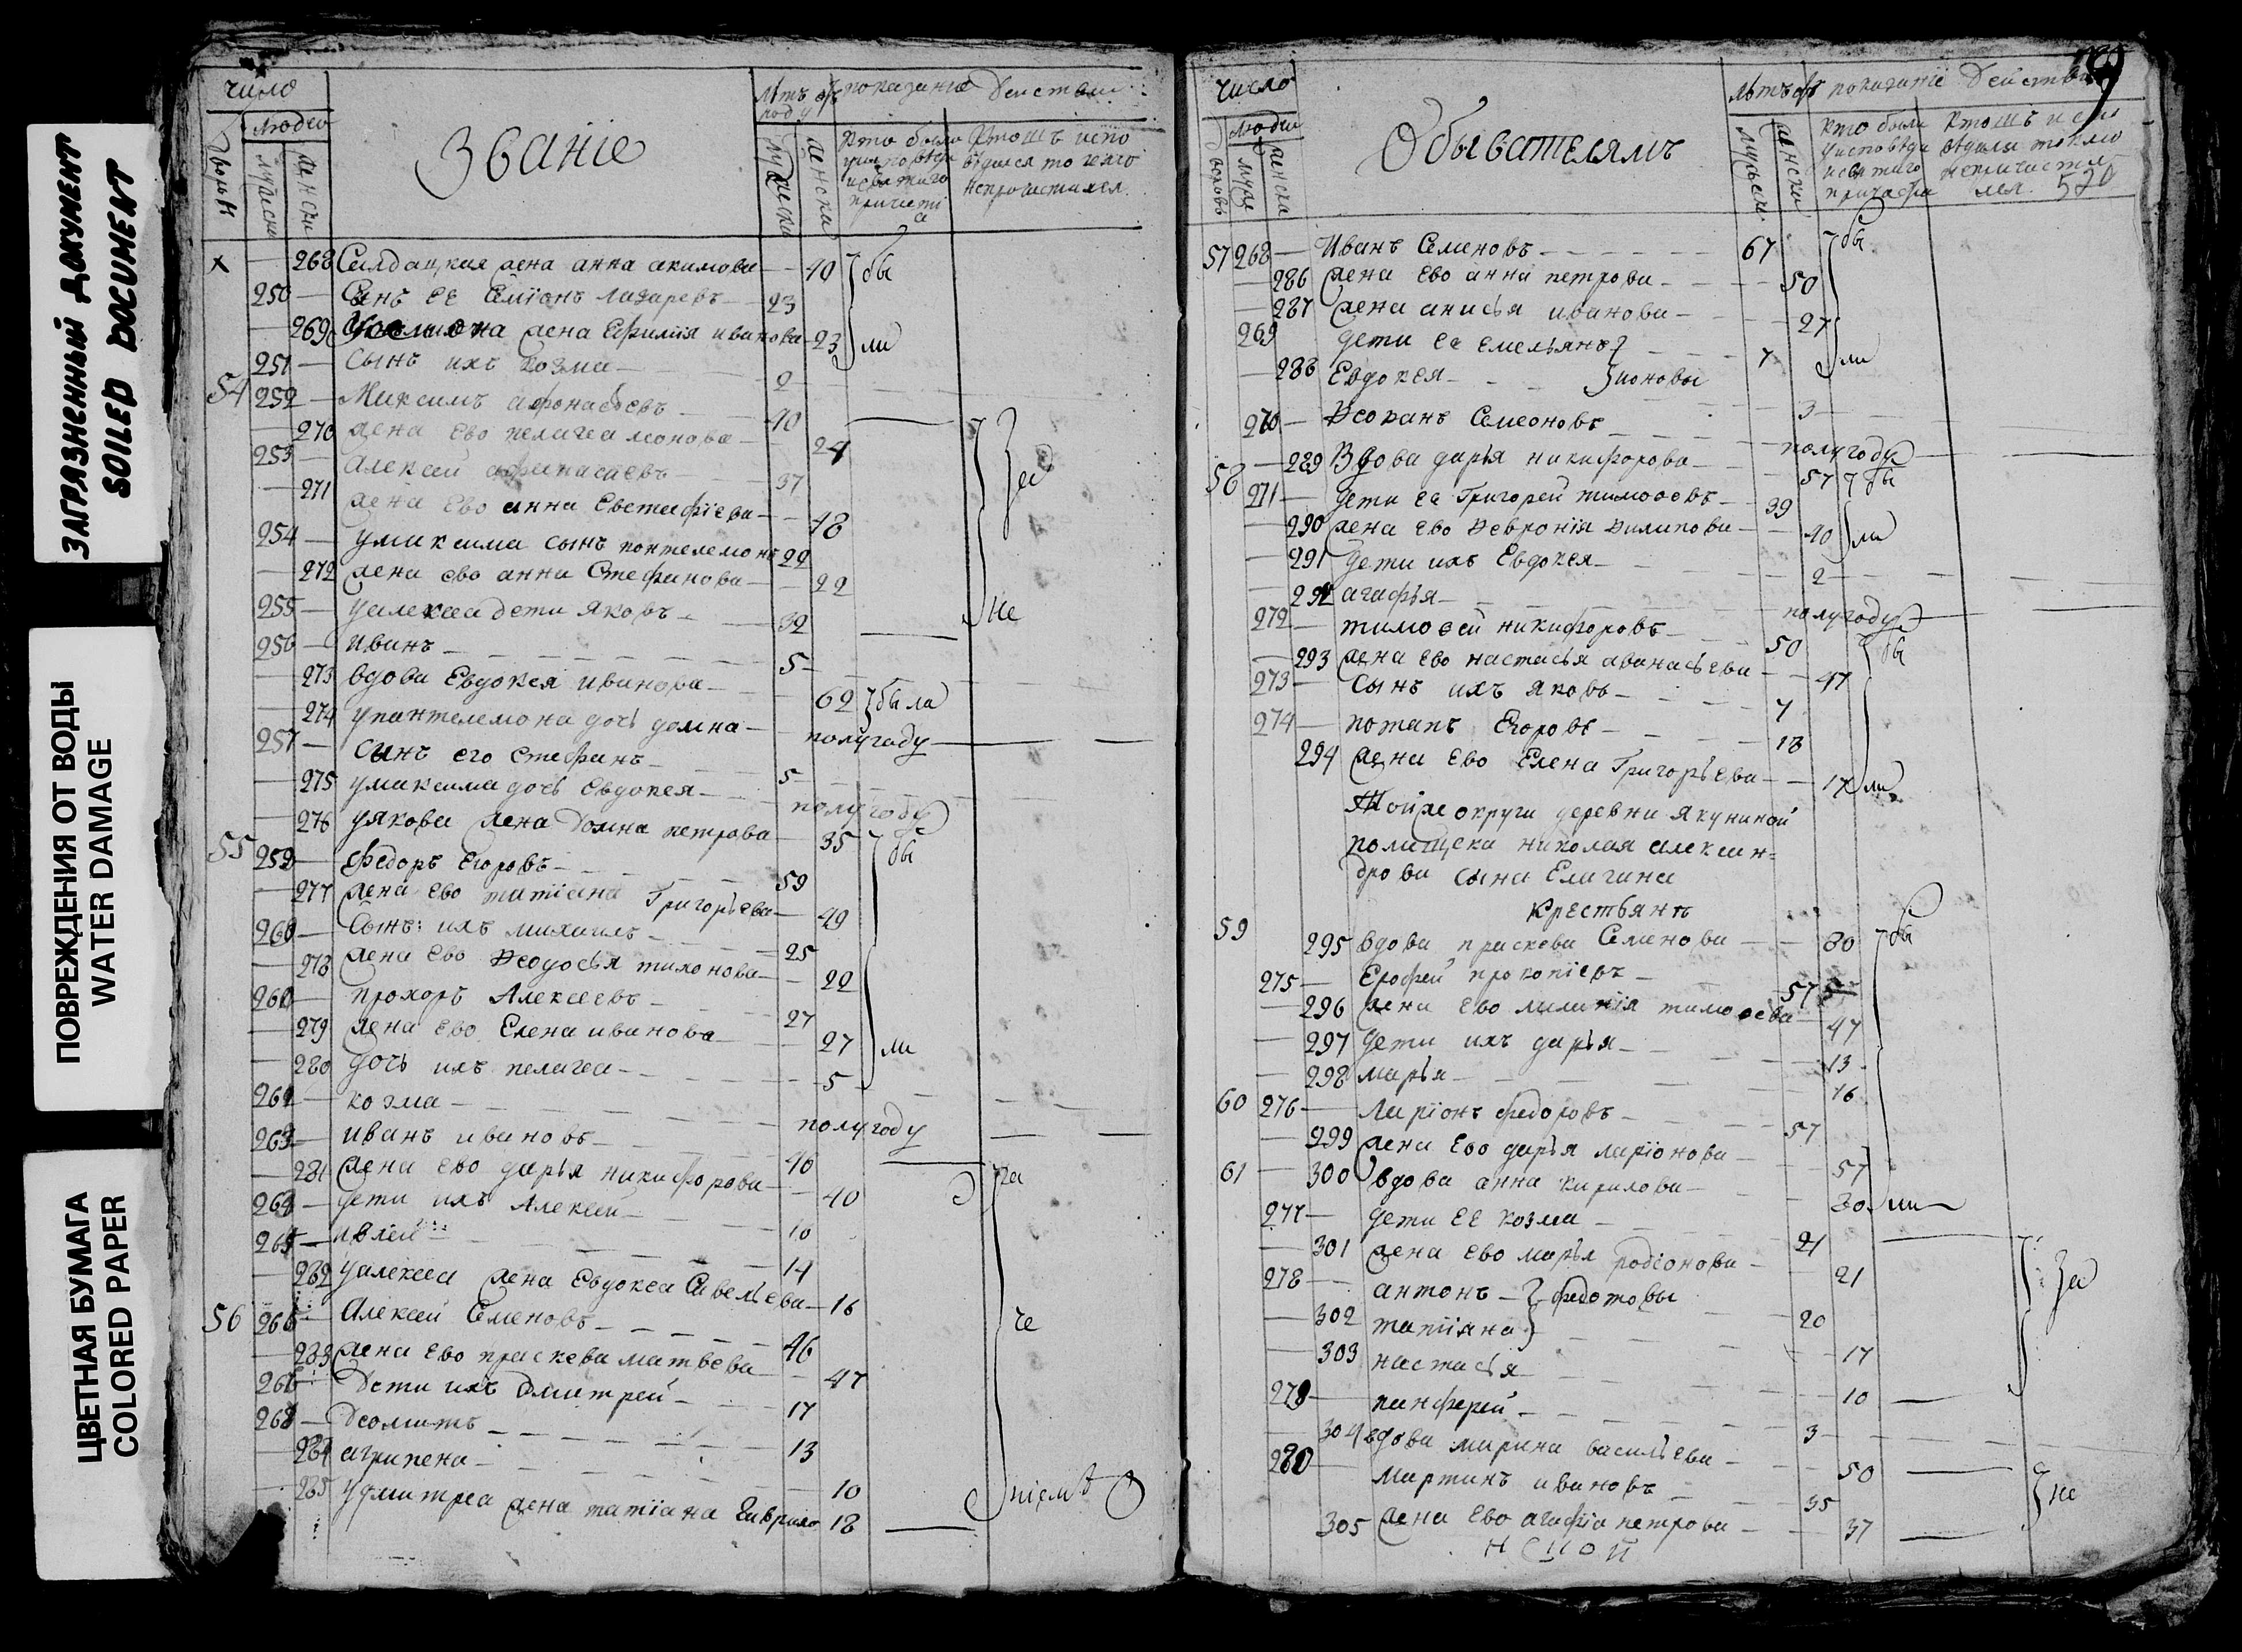 ЗАГРЯЗНЕННЫЙ ДОКУМЕНТ
SOILED DOCUMENT
ПОВРЕЖДЕНИЯ ОТ ВОДЫ
WATER DAMAGE
ЦВЕТНАЯ БУМАГА
COLORED PAPER
число
людей
Званіе
показание действа
268 Салдацкая жена анна акимова 40 бы
250 Сынъ ее Семіонъ лазаревъ 23
269 жена Ефимия иванова 23 ли
251 сынъ ихъ козма 2
54 252 Максимъ афонасьевъ 40
270 жена ево пелагеа 24
253 алексей 37
271 жена ево анна Евстафіева 48 за
254 умаксима сынъ пантелемонъ 22
272 жена ево анна Стефанова 22
255 уалексеа дети яковъ 32 не
256 иванъ 5
273 вдова Евдокея иванова 62 была
274 упантелемона дочь домна полугоду
257 сынъ его стефанъ 5
275 умаксима дочь Евдокея полугоду
276 уякова жена домна петрова 35 бы
55 259 Федоръ Егоровъ 59
277 жена ево татіана Григорьева 49
260 Сынъ ихъ михаилъ 25
278 жена ево Феодосья тихонова 22
прохоръ Алексеевъ 27
279 жена ево Елена иванова 27 ли
280 дочь ихъ пелагеа 5
козма полугоду
263 иванъ ивановъ 40
281 жена ево дарья никифорова 40
дети ихъ Алексей 10
14
282 уалексеа жена Евдокеа Савельева 16
56 Алексей Семеновъ 46
283 жена ево праскева матвева 47
дети ихъ дмитрей 17
13
284 агрипена 10
285 удмитреа жена татіана Гаврило 18
число
людей
Обывателямъ
показаніе действа
520
57 268 Иванъ Семеновъ 67 бы
286 жена ево анна петрова 50
287 жена анисья иванова 27
269 дети ее емельянъ 7 ли
288 Евдокея 3
270 Семеоновъ полугоду
58 289 Вдова дарья никифорова 57 бы
271 дети ее Григорей тимофеевъ 39
290 жена ево Февронія Филипова 40 ли
291 дети ихъ Евдокея 2
292 агафья полугоду
272 тимофей никифоровъ 50 бы
293 жена ево настасья аванасьева 47
273 сынъ ихъ яковъ 7
274 потапъ Егоровъ 18
294 жена ево Елена Григорьева 17 ли
Тойже округи деревни якуниной
помищека николая алексан=
дрова сына Елагина
крестьянъ
59 295 вдова праскева Семенова 80 бы
275 Ерофей прокопіевъ 57
296 жена ево тимофева 47
297 дети ихъ дарья 13
298 марья 16
60 276 Ларіонъ федоровъ 57
299 жена ево дарья ларіонова 57
61 300 вдова анна кирилова 80 ли
277 дети ее козма 21
301 жена ево марья родіонова 21 за
278 антонъ федотовы 20
302 татіяна 17
303 настасья 10
279 панферей 3
304 вдова марина васильева 50
280 мартинъ ивановъ 35 не
305 жена ево агафіа петрова 37